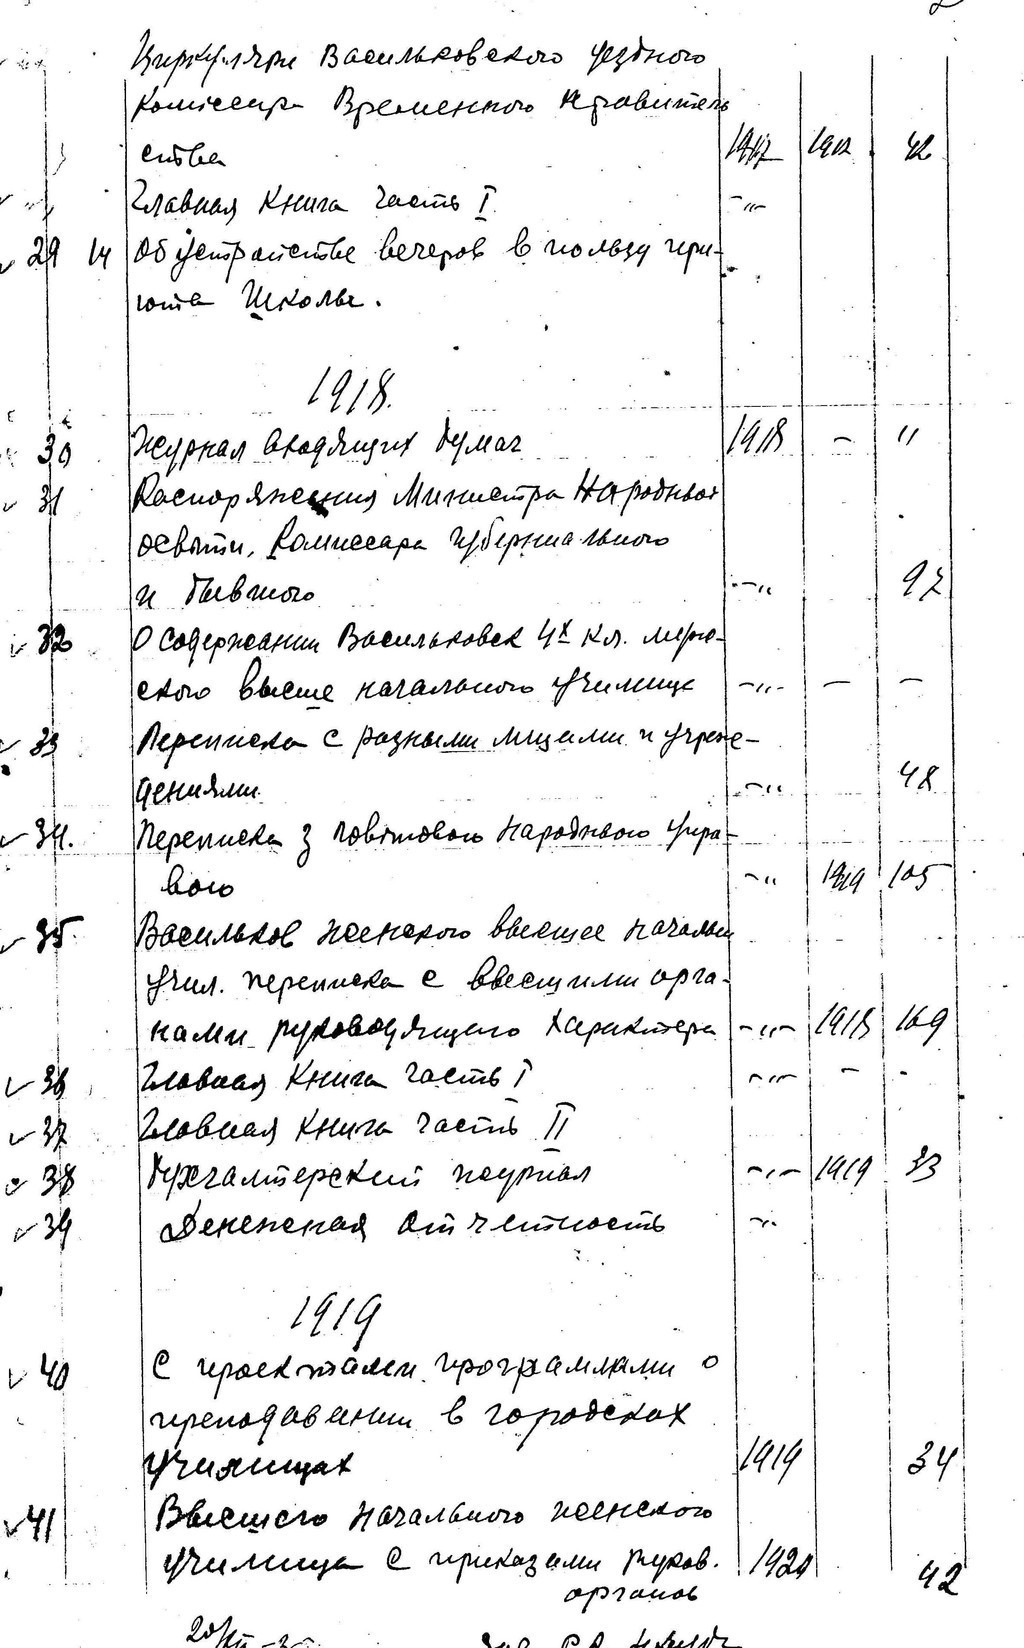 Циркуляри Васильковского уездного
комиссара Временного правитель
ства 1917 1917 42
Главная книга часть I -„-
29 14 Об устройстве вечеров в пользу при-
юта школы.
1918.
30 Журнал входящих бумаг 1918 - "
31 Распоряжения Министра Народной
освыти, комиссара губерниального
и бывшого -„- 97
32 О содержании Васильковск 4х кл. мужс-
ского высше начального училища -„- - -
33 Переписка с разными лицами и учреж-
дениями -„- 48
34. Переписка з повітовою народньою упра-
вою -„- 1919 105
35. Васильков женского высшее началь
учил. переписка с высшими орга-
нами руководящего характера -„- 1918 169
36 Главная книга часть I -„- -
37 Главная книга часть II
38 Бухгалтерский журнал -„- 1919 33
39 Денежная отчетность -„-
1919
40 С проектами программами о
преподавании в городских
училищах 1919 34
41 Высшего начального женского
училища с приказами руков. 1920 42
органов